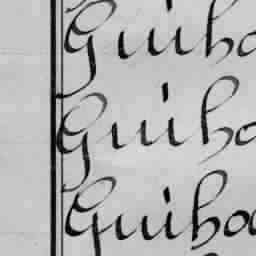 Guiho
Guiho
Guihoa